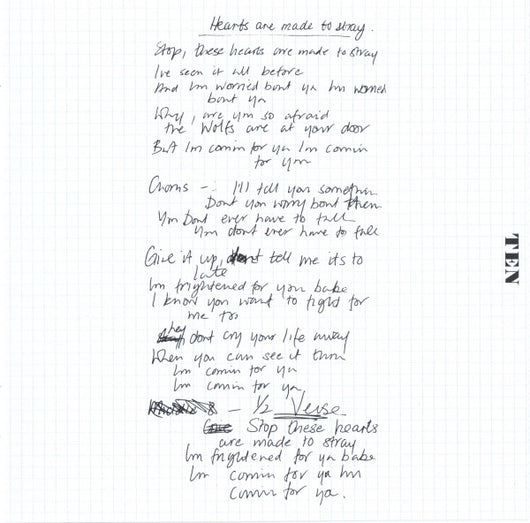 Hearts are made to stray.
Stop, these hearts are made to stray
Ive seen it all before
And Im worried bout ya Im worried
bout ya
Why, are you so afraid
the Wolfs are at your door
But Im comin for ya Im comin
for you
Chorus - : I'll tell you somethin
Dont you worry bout them
You Dont ever have to fall
You dont ever have to fall
Give it up, dont tell me its to
late
Im frightened for you babe
I know you want to fight for
me too
hey dont cry your life away
When you can see it thru
Im comin for ya
Im comin for ya
- 1/2 Verse
Stop these hearts
are made to stray
Im frightened for ya babe
Im comin for ya Im
comin for ya.
TEN